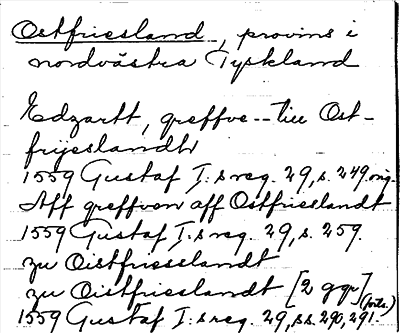 Ostfriesland, provins i
nordvästra Tyskland
Edzartt, greffve -- till Ost-
frijeslandtt
1559 Gustaf I:s reg. 29, s. 249 orig.
Aff greffven aff Ostfrieslandt
1559 Gustaf I:s reg. 29, s. 259.
zu Oistfriesslandt
zu Oistfrieslandt [2 ggr] (forts.)
1559 Gustaf I:s reg. 29, ss. 290, 291.